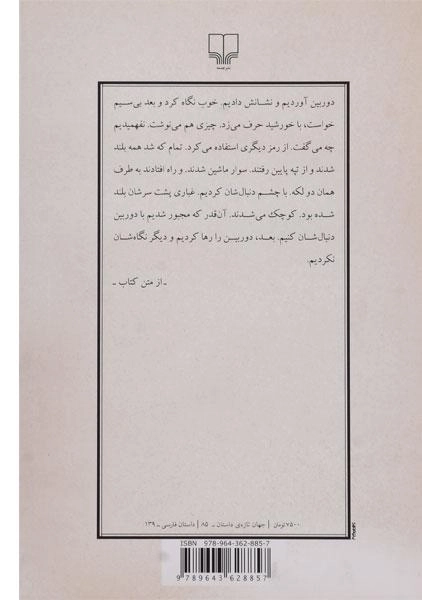 نشر چشمه
دوربین آوردیم و نشانش دادیم. خوب نگاه کرد و بعد بی‌سیم
خواست، با خورشید حرف می‌زد. چیزی هم می‌نوشت. نفهمیدیم
چه می‌گفت. از رمز دیگری استفاده می‌کرد. تمام که شد همه بلند
شدند و از تپه پایین رفتند. سوار ماشین شدند. و راه افتادند به طرف
همان دو لکه. با چشم دنبال‌شان کردیم. غباری پشت سرشان بلند
شده بود. کوچک می‌شدند. آن‌قدر که مجبور شدیم با دوربین
دنبال‌شان کنیم. بعد، دوربین را رها کردیم و دیگر نگاه‌شان
نکردیم.
ـ از متن کتاب ـ
۷۵۰۰ تومان | جهان تازه‌ی داستان ـ ۸۵ | داستان فارسی ـ ۱۳۹
ISBN 978-964-362-885-7
9 789643 628857